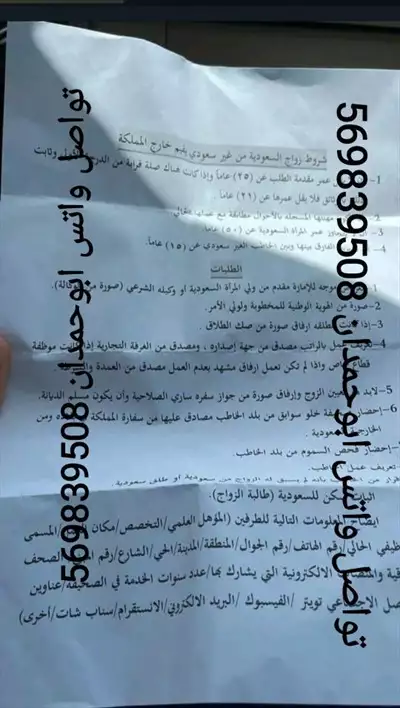 شروط زواج السعودية من غير سعودي يقيم خارج المملكة
1- عمر مقدمة الطلب عن (٢٥) عاماً وإذا كانت هناك صلة قرابة من الدرجة وثابت
ثائق فلا يقل عمرها عن (٢١) عاماً.
2- مهنتها المسجلة بالأحوال مطابقة مع عملها الحالي
3- عمر المرأة السعودية عن (٥٠) عاماً.
4- الفارق بينها وبين الخاطب الغير سعودي عن (١٥) عاماً.
الطلبات
1- موجه للإمارة مقدم من ولي المرأة السعودية أو وكيله الشرعي (صورة من الوكالة).
2-صورة من الهوية الوطنية للمخطوبة ولولي الأمر.
3-إذا مطلقه ارفاق صورة من صك الطلاق.
4- بالراتب مصدق من جهة إصداره ، ومصدق من الغرفة التجارية إذا موظفة
قطاع خاص واذا لم تكن تعمل ارفاق مشهد بعدم العمل مصدق من العمدة
5-لابد الزوج وإرفاق صورة من جواز سفره ساري الصلاحية وأن يكون مسلم الديانة.
6-إحضار خلو سوابق من بلد الخاطب مصادق عليها من سفارة المملكة ومن
الخارجية السعودية .
-إحضار فحص السموم من بلد الخاطب.
تعريف عمل
للسعودية (طالبة الزواج).
ايضاح المعلومات التالية للطرفين (المؤهل العلمي/التخصص/مكان /المسمى
ظيفي الحالي/رقم الهاتف/رقم الجوال/المنطقة/المدينة/الحي/الشارع/رقم الصحف
الالكترونية التي يشارك بها/عدد سنوات الخدمة في الصحيفة/عناوين
تويتر /الفيسبوك /البريد الالكتروني/الانستقرام/سناب شات/أخرى)
تواصل واتس ابوحمدان 569839508
تواصل واتس ابوحمدان 569839508